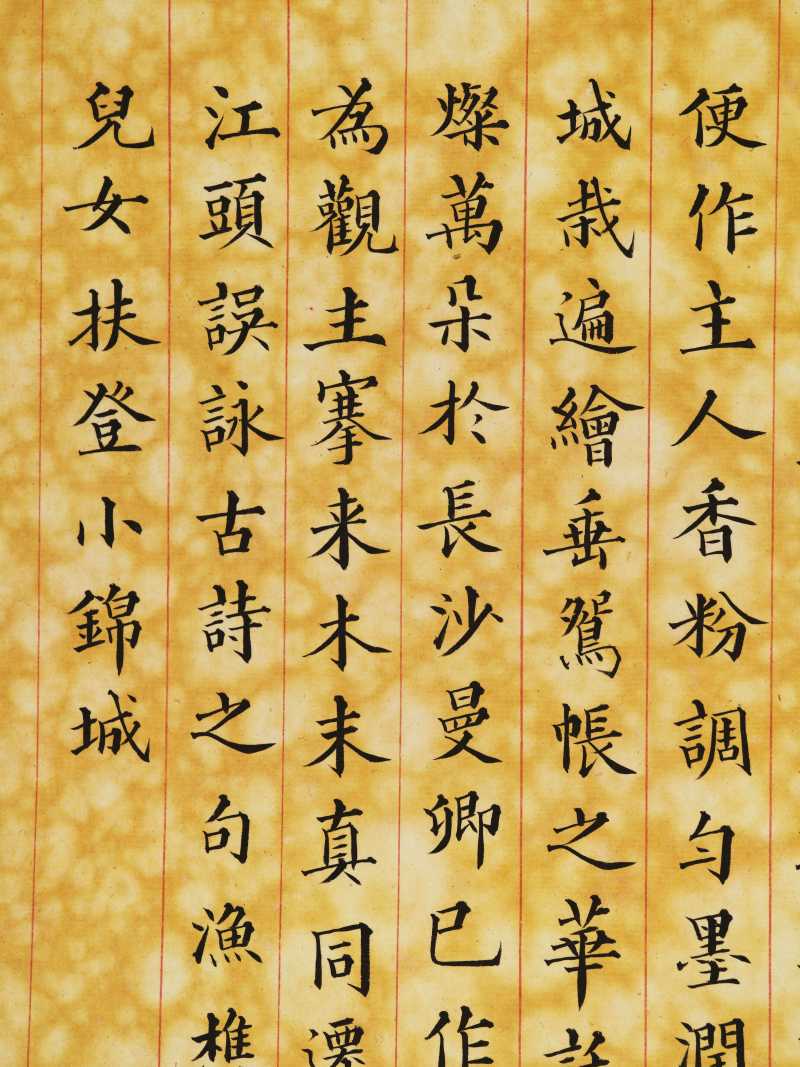 便作主人香粉調勻墨潤
城栽遍繪垂鴛帳之華
燦萬朵於長沙曼卿已作
為觀主搴来木末真同
江頭誤詠古詩之句漁樵
兒女扶登小錦城